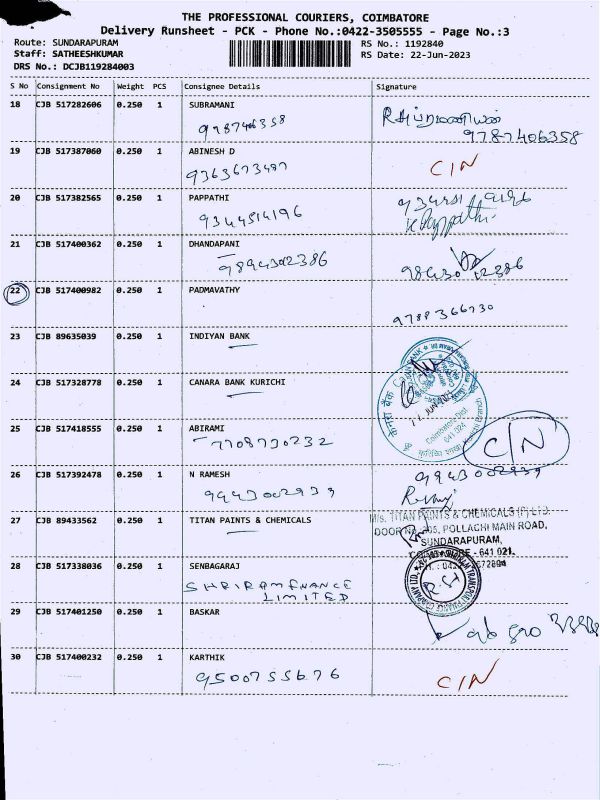 THE PROFESSIONAL COURIERS, COIMBATORE
Delivery Runsheet - PCK - Phone No.:0422-3505555 - Page No.:3
Route: SUNDARAPURAM
RS No.: 1192840
Staff: SATHEESHKUMAR
RS Date: 22-Jun-2023
DRS No.: DCJB119284003
S No Consignment No Weight PCS Consignee Details Signature
18 CJB 517282606 0.250 1 SUBRAMANI
9787406358
9787406358
19 CJB 517387060 0.250 1 ABINESH D
9363673487 C/N
20 CJB 517382565 0.250 1 PAPPATHI
9344514196
K.Pappathi
21 CJB 517400362 0.250 1 DHANDAPANI
9894302386
22 CJB 517400982 0.250 1 PADMAVATHY
9788366730
23 CJB 89635039 INDIYAN BANK
24 CJB 517328778 0.250 1 CANARA BANK KURICHI
25 CJB 517418555 0.250 1 ABIRAMI
7708730232 C/N
26 CJB 517392478 0.250 1 N RAMESH
9943002939
9943002939
27 CJB 89433562 0.250 1 TITAN PAINTS & CHEMICALS
M/s. TITAN PAINTS & CHEMICALS (P) LTD.
POLLACHI MAIN ROAD,
SUNDARAPURAM,
COIMBATORE - 641 021.
28 CJB 517338036 0.250 1 SENBAGARAJ
SHRIRAM FENANCE
LIMITED
29 CJB 517401250 0.250 1 BASKAR
30 CJB 517400232 0.250 1 KARTHIK
9500755676 C/N